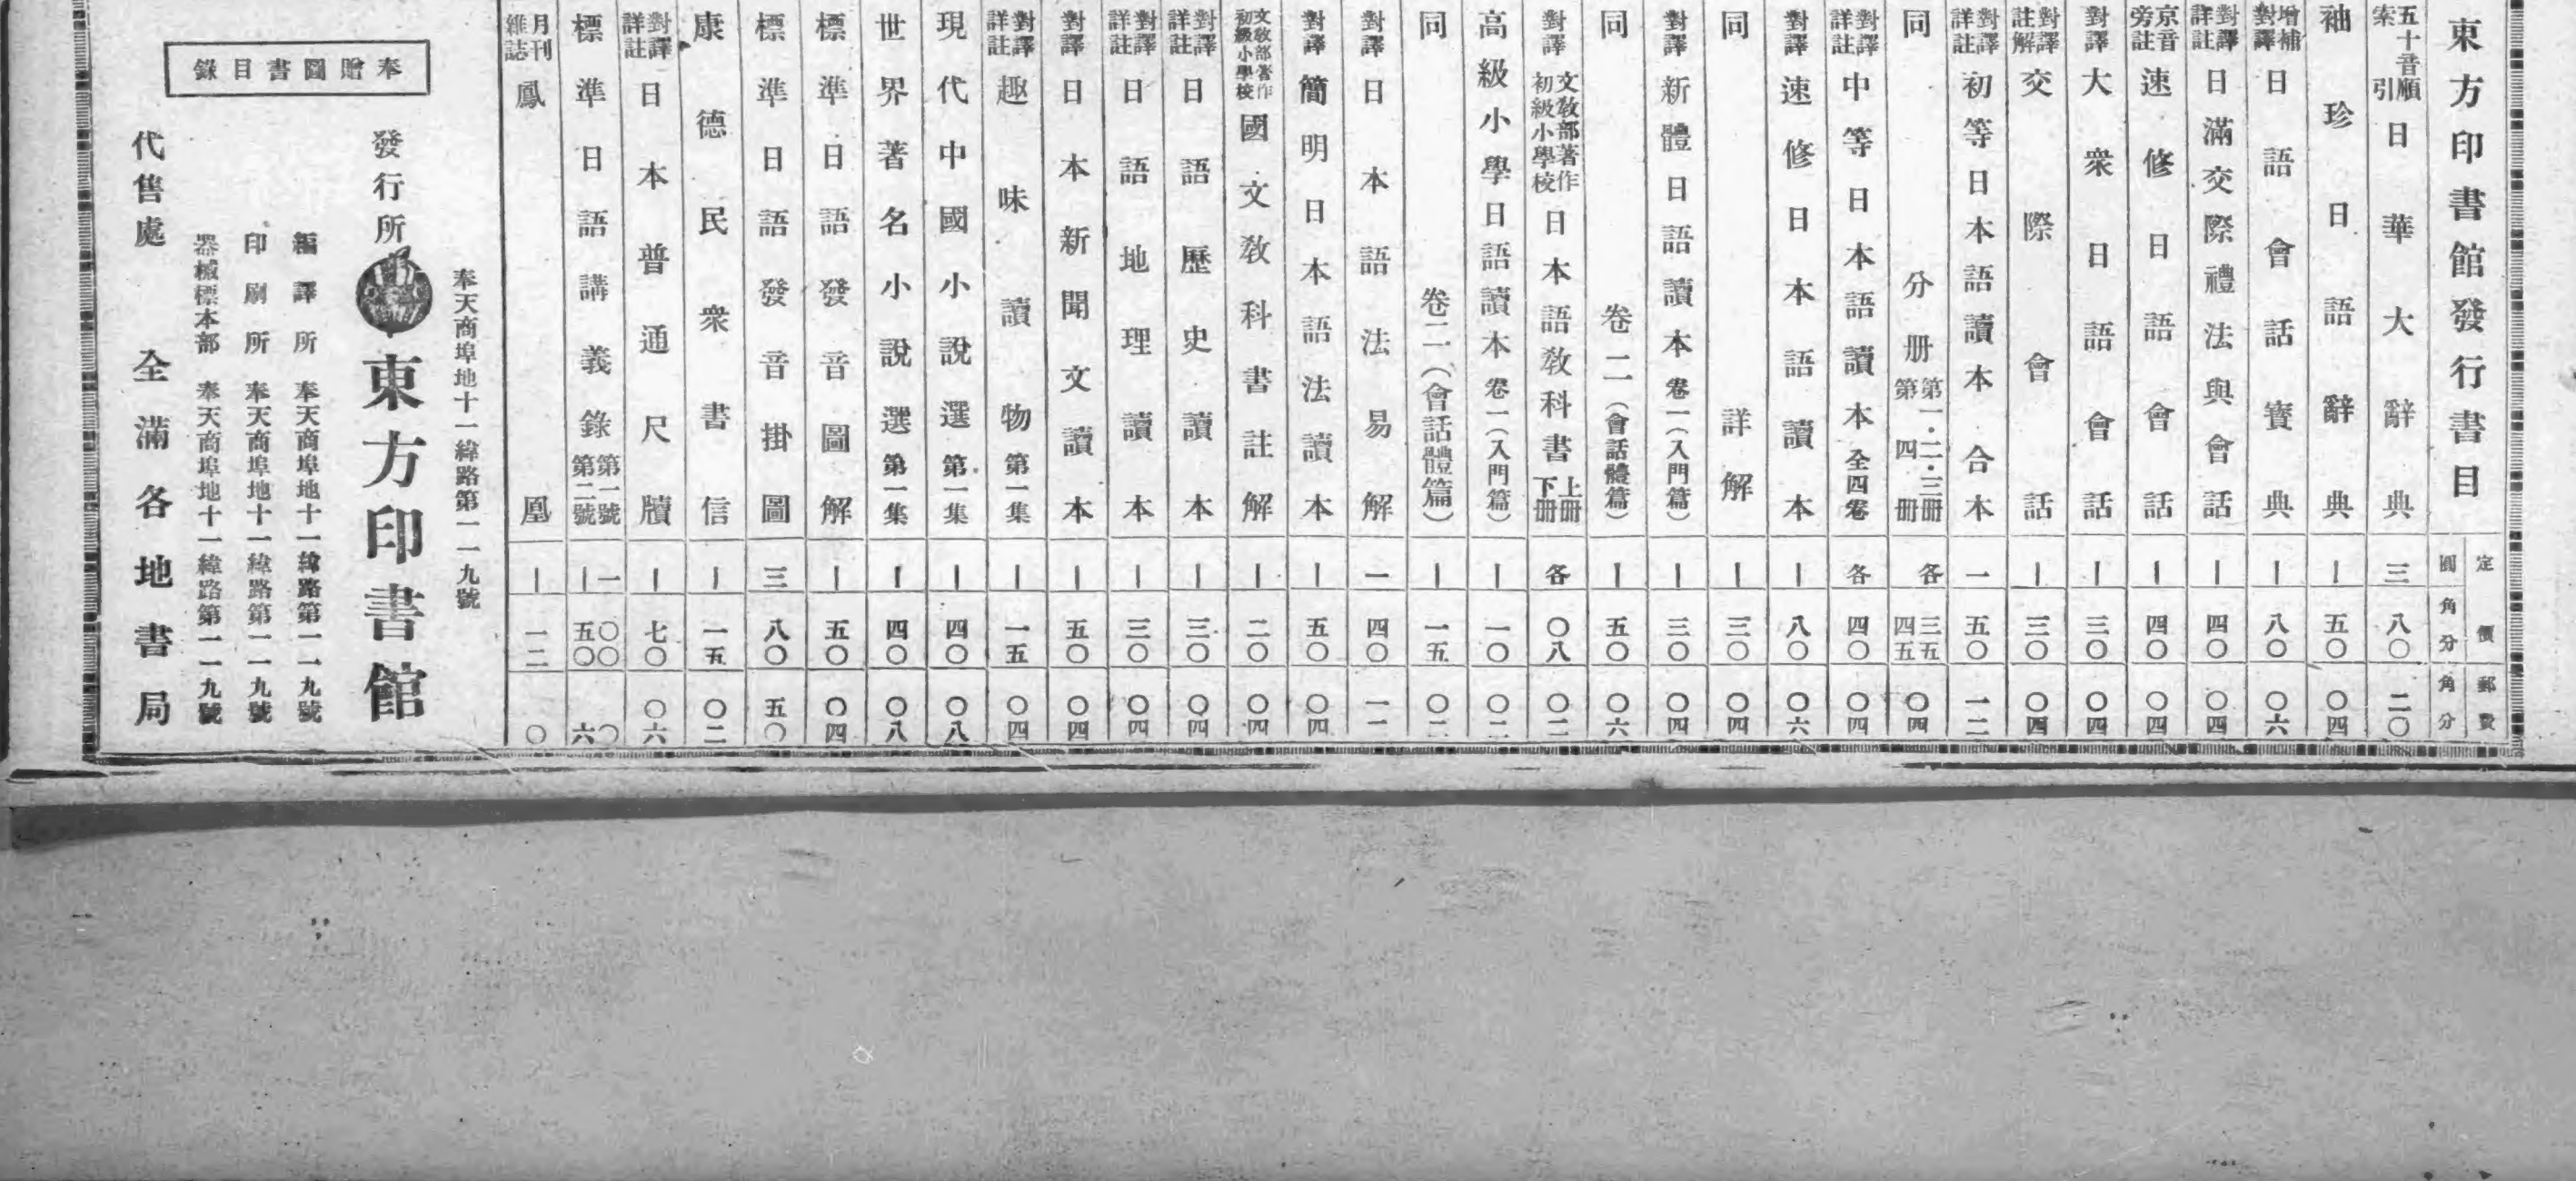 東方印書館發行書目
定價 圓 角 分
郵費 角 分
五十音順索引 日華大辭典 三 八〇 二〇
袖珍日語辭典 | 五〇 〇四
增補對譯 日語會話寶典 | 八〇 〇六
對譯詳註 日滿交際禮法與會話 | 四〇 〇四
京音旁註 速修日語會話 | 四〇 〇四
對譯 大衆日語會話 | 三〇 〇四
對譯註解 交際會話 | 三〇 〇四
對譯詳註 初等日本語讀本合本 一 五〇 一二
同 分册 第一・二・三册 第四册 各 三五 四五 〇四
對譯詳註 中等日本語讀本 全四卷 各 四〇 〇四
對譯 速修日本語讀本 | 八〇 〇六
同 詳解 | 三〇 〇四
對譯 新體日語讀本 卷一(入門篇) | 三〇 〇四
同 卷二(會話體篇) | 五〇 〇六
對譯 文教部著作初級小學校 日本語教科書 上册下册 各 〇八 〇二
高級小學日語讀本 卷一(入門篇) | 一〇 〇二
同 卷二(會話體篇) | 一五 〇二
對譯 日本語法易解 一 四〇 一二
對譯 簡明日本語法讀本 | 五〇 〇四
文教部著作初級小學校 國文教科書註解 | 二〇 〇四
對譯詳註 日語歷史讀本 | 三〇 〇四
對譯詳註 日語地理讀本 | 三〇 〇四
對譯 日本新聞文讀本 | 五〇 〇四
對譯詳註 趣味讀物 第一集 | 一五 〇四
現代中國小說選 第一集 | 四〇 〇八
世界著名小說選 第一集 | 四〇 〇八
標準日語發音圖解 | 五〇 〇四
標準日語發音掛圖 三 八〇 五〇
康德民衆書信 | 一五 〇二
對譯詳註 日本普通尺牘 | 七〇 〇六
標準日語講義錄 第一號第二號 一 〇〇 | 五〇 六
月刊雜誌 鳳凰 | 一二 〇
奉天商埠地十一緯路第一一九號
發行所 東方印書館
編譯所 奉天商埠地十一緯路第一一九號
印刷所 奉天商埠地十一緯路第一一九號
器械標本部 奉天商埠地十一緯路第一一九號
代售處 全滿各地書局
奉贈圖書目錄